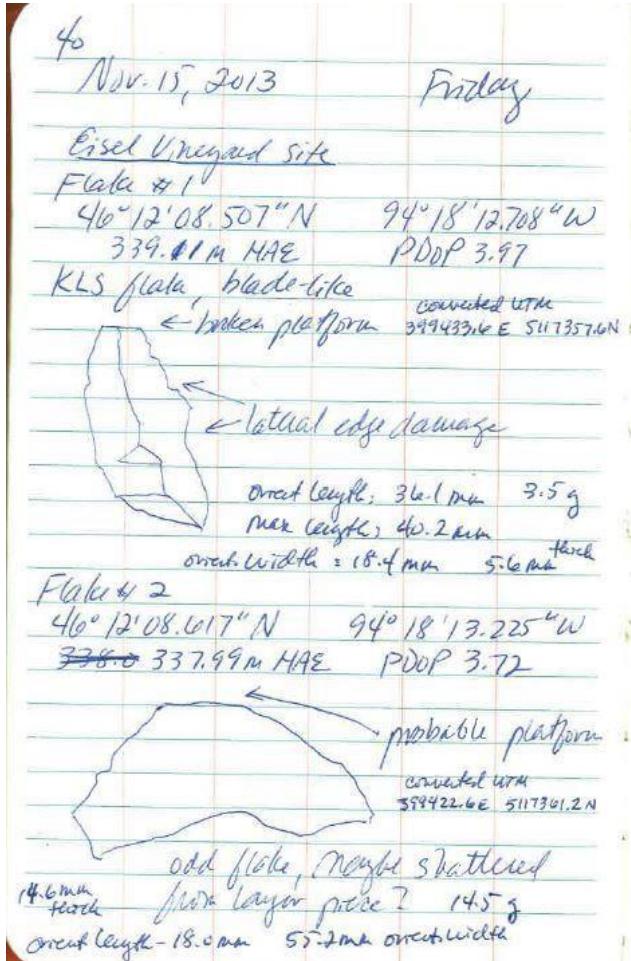 40
Nov. 15, 2013 Friday
Eisel Vineyard Site
Flake #1
46° 12' 08.507" N 94° 18' 12.708" W
339.11 m HAE PDOP 3.97
KLS flake, blade-like
converted UTM
← broken platform 399433.6 E 5117357.6 N
lateral edge damage
orient length: 36.1 mm 3.5 g
max length: 40.2 mm
orient. width = 18.4 mm 5.6 mm thick
Flake # 2
46° 12' 08.617" N 94° 18' 13.225" W
338.0 337.99 m HAE PDOP 3.72
probable platform
converted UTM
399422.6 E 5117361.2 N
odd flake, maybe shattered
from larger piece? 14.5 g
14.6 mm thick
orient length - 18.0 mm 55.2 mm orient. width